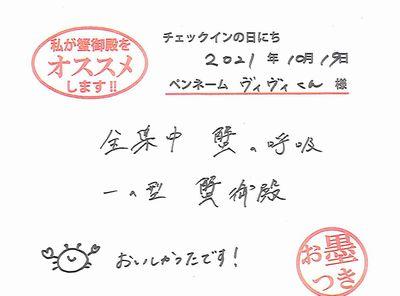 私が蟹御殿を
オススメ
します!!
チェックインの日にち
2021 年 10月 19日
ペンネーム ヴィヴィくん 様
全集中 蟹の呼吸
一の型 蟹御殿
おいしかったです!
お墨
つき